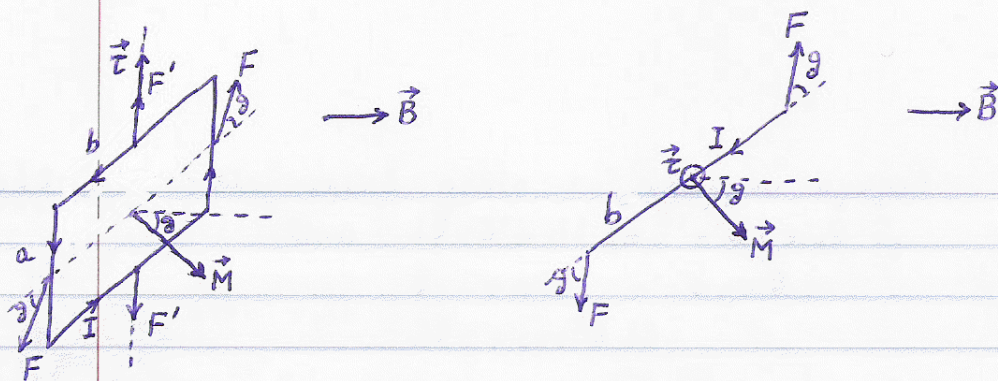 τ⃗
F'
F
ϑ
B⃗
b
ϑ
a
M⃗
ϑ
I
F'
F
F
ϑ
B⃗
I
τ⃗
ϑ
b
M⃗
ϑ
F